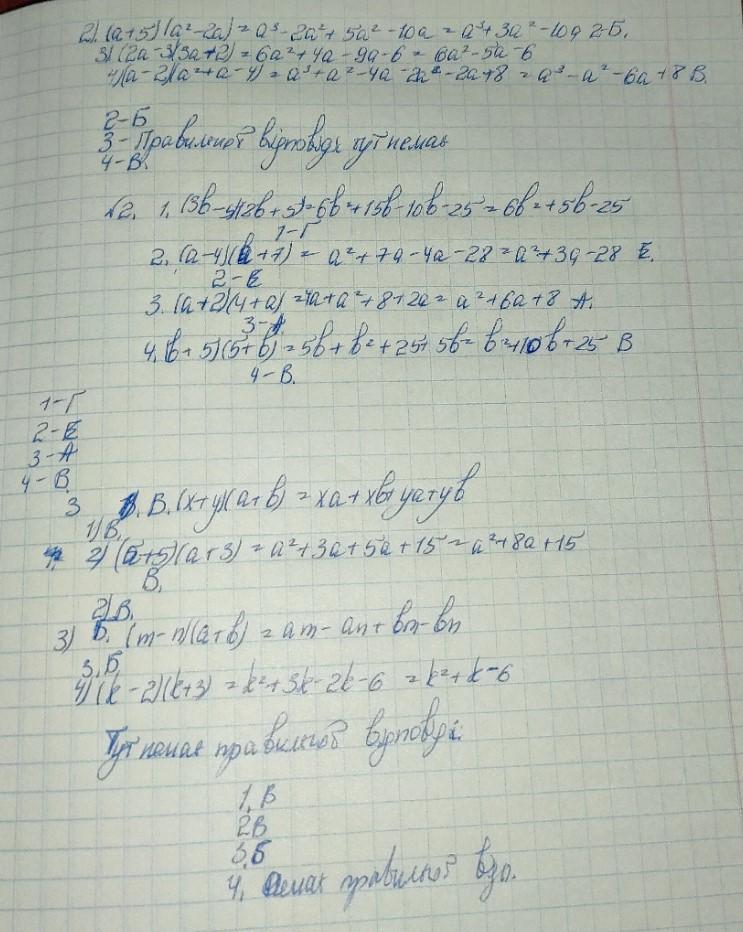 2) (a+5)(a²-2a) = a³-2a²+5a²-10a = a³+3a²-10a 2-Б.
3) (2a-3)(3a+2) = 6a²+4a-9a-6 = 6a²-5a-6
4) (a-2)(a²+a-4) = a³+a²-4a-2a²-2a+8 = a³-a²-6a+8 В.
2-Б
3-Правильної відповіді тут немає
4-В.
№2. 1. (3b-5)(2b+5)=6b²+15b-10b-25=6b²+5b-25
1-Г
2. (a-4)(a+7) = a²+7a-4a-28=a²+3a-28 Е.
2-Е
3. (a+2)(4+a) =4a+a²+8+2a= a²+6a+8 А.
3-А
4. (b+5)(5+b) = 5b+b²+25+5b= b²+10b+25 В
4-В.
1-Г
2-Е
3-А
4-В.
3 1. В. (x+y)(a+b) = xa+xb+ya+yb
1) В.
2) (a+5)(a+3) = a²+3a+5a+15=a²+8a+15
В.
2) В.
3) Б. (m-n)(a+b) = am-an+bm-bn
3. Б
4) (k-2)(k+3) = k²+3k-2k-6 = k²+k-6
Тут немає правильної відповіді.
1. В
2 В
3. Б
4. Немає правильної відп.